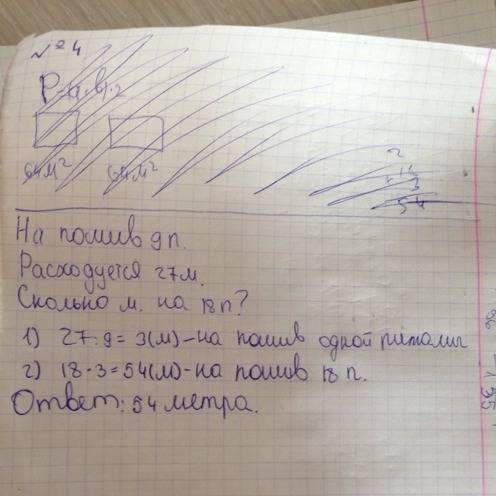 № 4
P=(a+b)·2
64м² 64м²
2
3
54
На пошив 9п.
Расходуется 27м.
Сколько м. на 18п?
1) 27:9=3(м)-на пошив одной
2) 18·3=54(м)-на пошив 18 п.
Ответ: 54 метра.